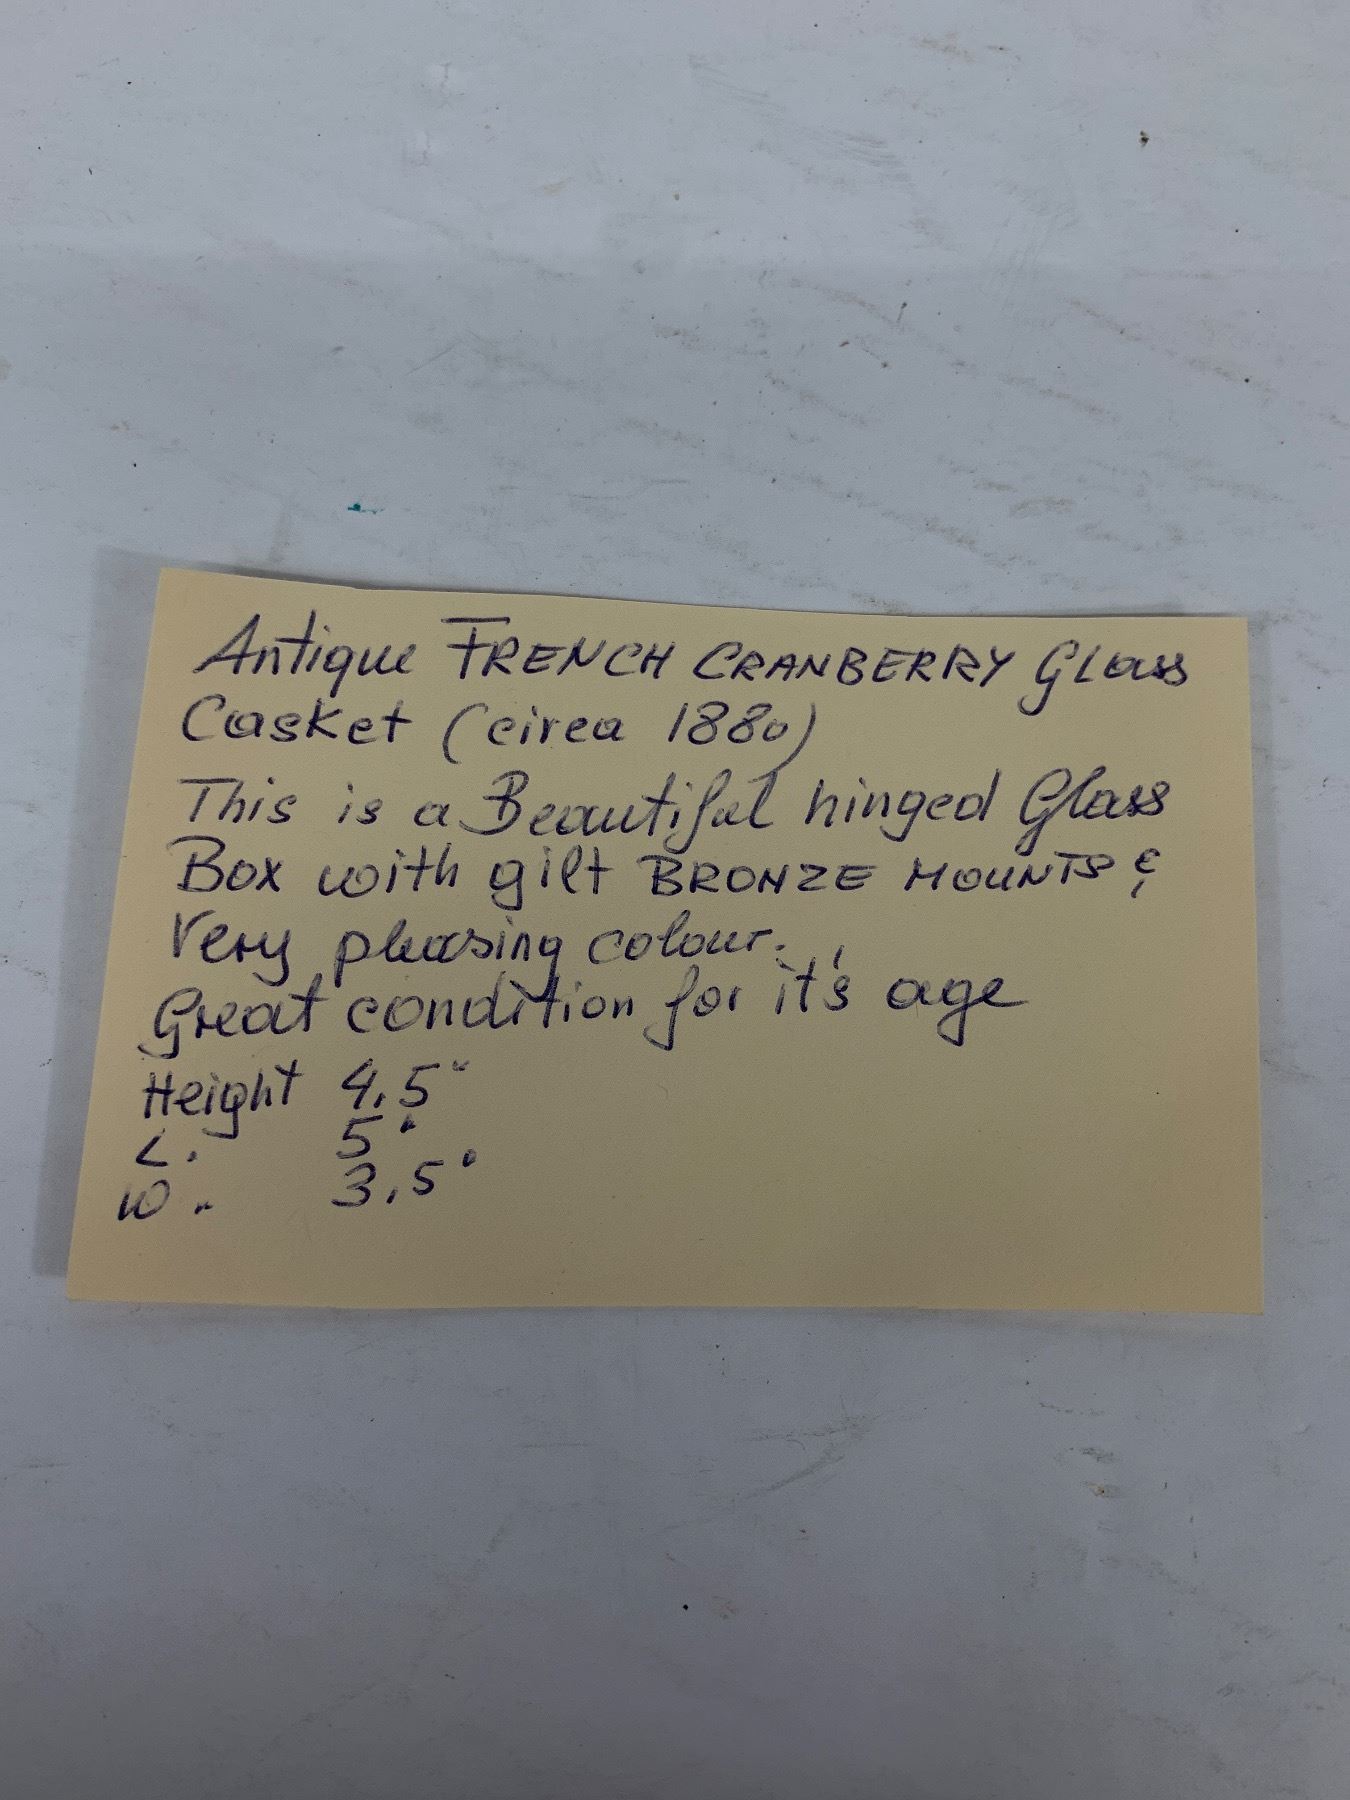 Antique FRENCH CRANBERRY Glass
Casket (circa 1880)
This is a Beautiful hinged Glass
Box with gilt BRONZE MOUNTS &
Very pleasing colour.
Great condition for it's age
Height 4.5"
L. 5"
W.. 3.5"